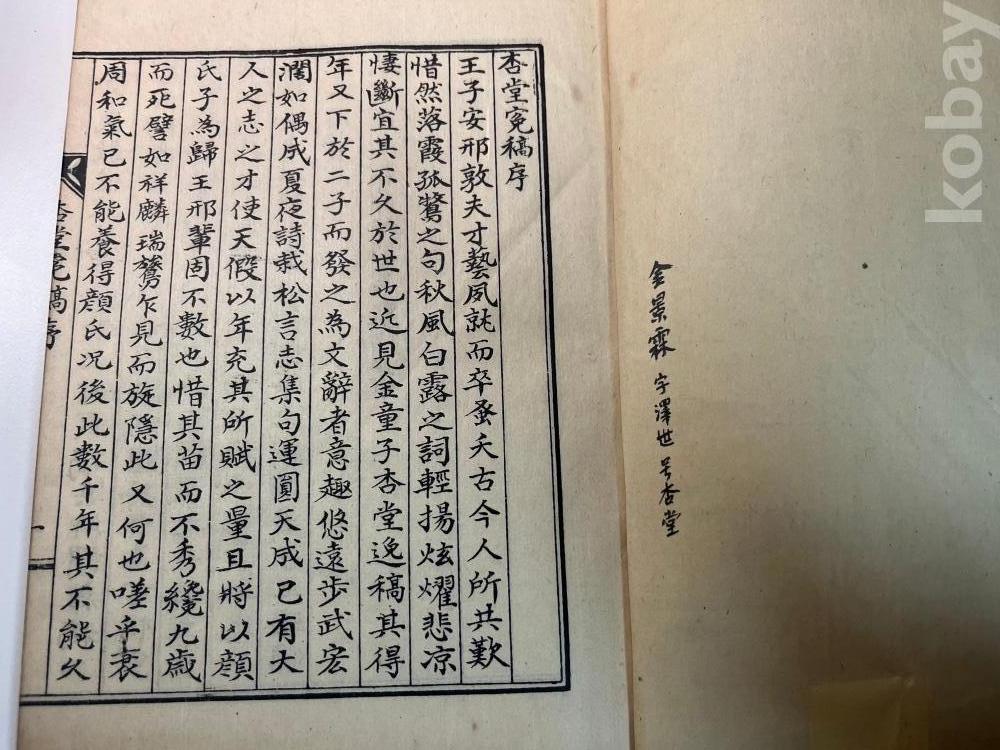 kobay
金景霖 字澤世 号杏堂
杏堂寃稿序
王子安邢敦夫才藝夙就而卒蚤夭古今人所共歎
惜然落霞孤鶩之句秋風白露之詞輕揚炫耀悲凉
悽斷宜其不久於世也近見金童子杏堂逸稿其得
年又下於二子而發之為文辭者意趣悠遠步武宏
濶如偶成夏夜詩栽松言志集句運圓天成已有大
人之志之才使天假以年充其所賦之量且將以顔
氏子為歸王邢輩固不數也惜其苗而不秀纔九歲
而死譬如祥麟瑞鷟乍見而旋隱此又何也嗟乎衰
周和氣已不能養得顔氏况後此數千年其不能久
杏堂寃稿序
一